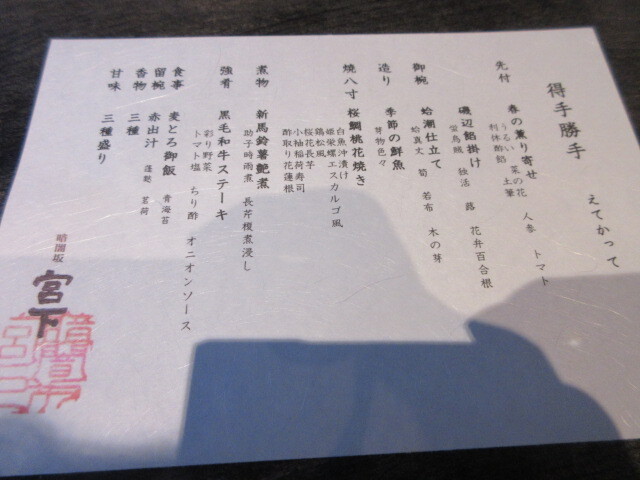 得手勝手 えてかって
先付 春の薫り寄せ
うるい 菜の花 人参 トマト
利休酢餡 土筆
磯辺餡掛け
蛍烏賊 独活 蕗 花弁百合根
御椀 蛤潮仕立て
蛤真丈 筍 若布 木の芽
造り 季節の鮮魚
芽物色々
焼八寸 桜鯛桃花焼き
白魚沖漬け
姫栄螺エスカルゴ風
鶏松風
桜花長芋
小袖稲荷寿司
酢取り花蓮根
煮物 新馬鈴薯艶煮
助子時雨煮 長芹榎煮浸し
強肴 黒毛和牛ステーキ
彩り野菜
トマト塩 ちり酢 オニオンソース
食事 麦とろ御飯 青海苔
留椀 赤出汁 蓬麩 茗荷
香物 三種
甘味 三種盛り
暗闇坂
宮下